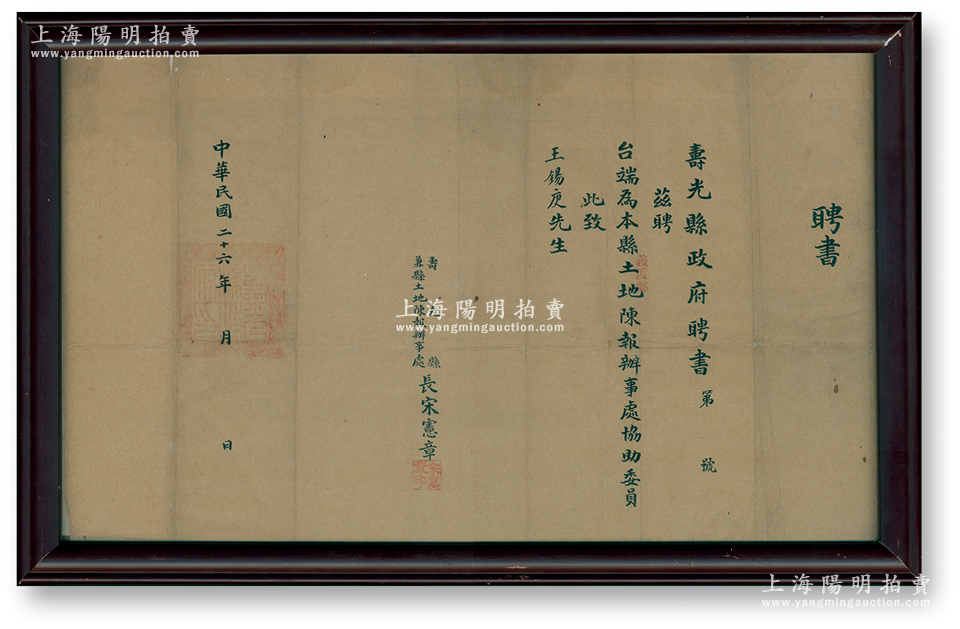 聘書
壽光縣政府聘書 第 號
茲聘
台端為本縣土地陳報辦事處協助委員
此致
王錫庚先生
壽光縣
兼縣土地陳報辦事處
長宋憲章
中華民國二十六年 月 日
上海陽明拍賣
www.yangmingauction.com
上海陽明拍賣
www.yangmingauction.com
上海陽明拍賣
www.yangmingauction.com